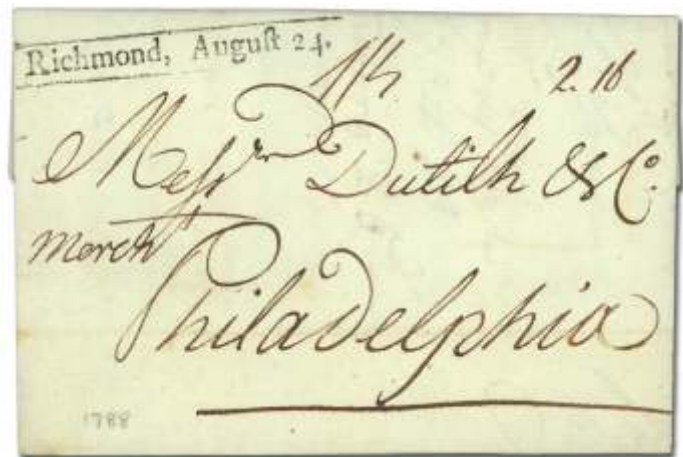 Richmond, Auguſt 24.
1/4 2.16
Meſsrs Dutilh & Co.
Merchts
Philadelphia
1788